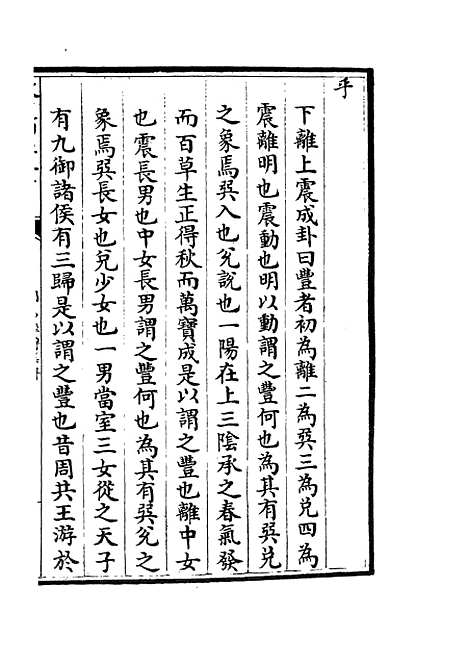 乎
下離上震成卦曰豐者初為離二為巽三為兌四為
震離明也震動也明以動謂之豐何也為其有巽兌
之象焉巽入也兌說也一陽在上三陰承之春氣發
而百草生正得秋而萬寶成是以謂之豐也離中女
也震長男也中女長男謂之豐何也為其有巽兌之
象焉巽長女也兌少女也一男當室三女從之天子
有九御諸侯有三歸是以謂之豐也昔周共王游於